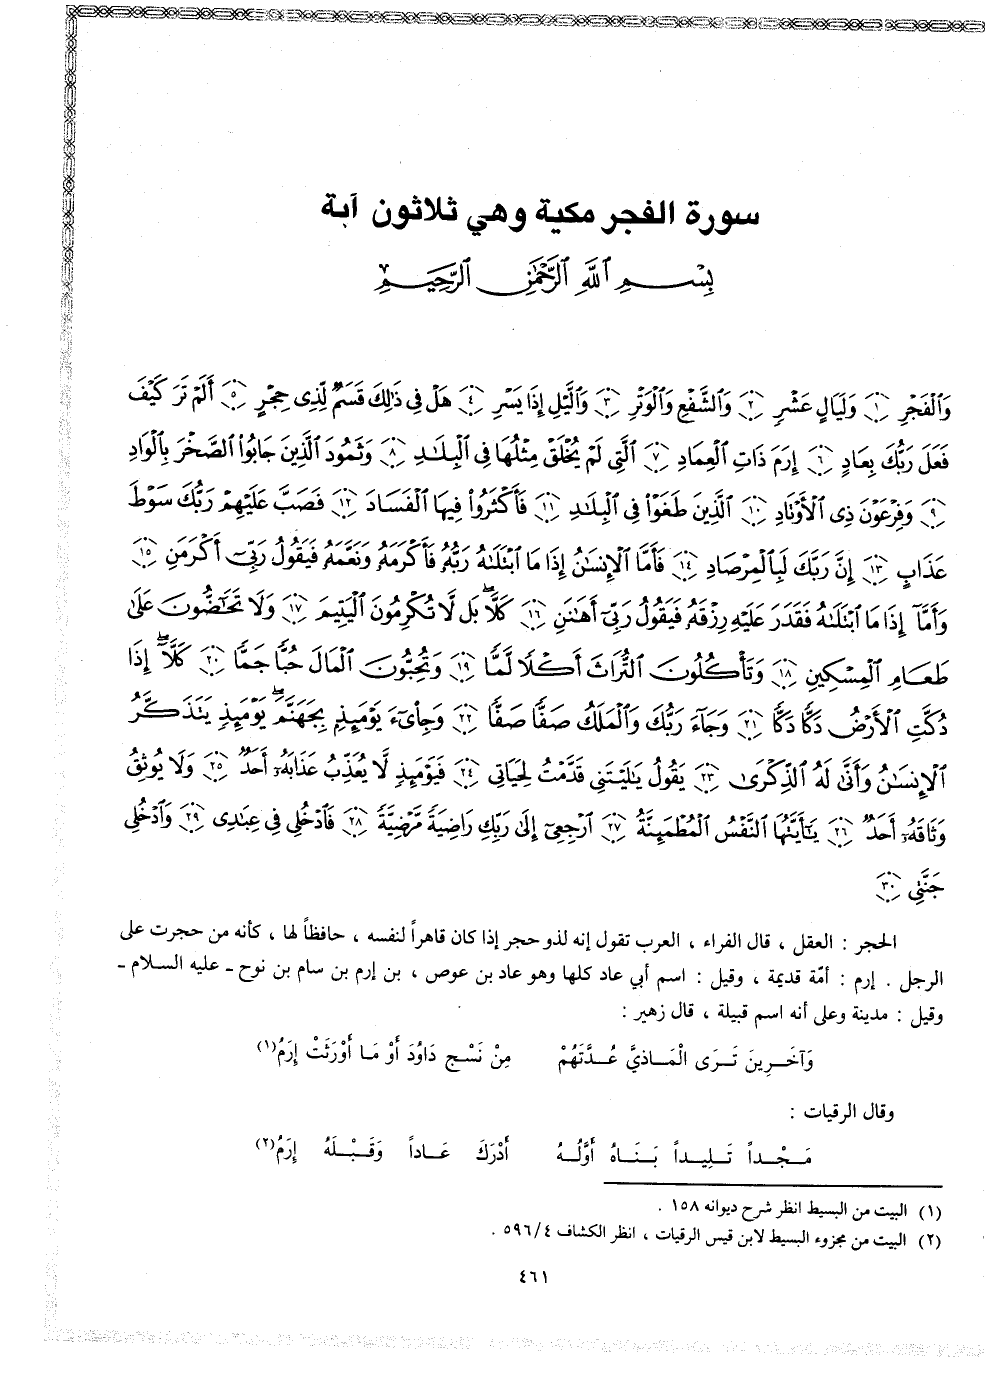 سورة الفجر مكية وهي ثلاثون آية
بِسْمِ ٱللَّهِ ٱلرَّحْمَٰنِ ٱلرَّحِيمِ
وَٱلْفَجْرِ ﴿١﴾ وَلَيَالٍ عَشْرٍ ﴿٢﴾ وَٱلشَّفْعِ وَٱلْوَتْرِ ﴿٣﴾ وَٱلَّيْلِ إِذَا يَسْرِ ﴿٤﴾ هَلْ فِى ذَٰلِكَ قَسَمٌ لِّذِى حِجْرٍ ﴿٥﴾ أَلَمْ تَرَ كَيْفَ
فَعَلَ رَبُّكَ بِعَادٍ ﴿٦﴾ إِرَمَ ذَاتِ ٱلْعِمَادِ ﴿٧﴾ ٱلَّتِى لَمْ يُخْلَقْ مِثْلُهَا فِى ٱلْبِلَٰدِ ﴿٨﴾ وَثَمُودَ ٱلَّذِينَ جَابُوا۟ ٱلصَّخْرَ بِٱلْوَادِ
﴿٩﴾ وَفِرْعَوْنَ ذِى ٱلْأَوْتَادِ ﴿١٠﴾ ٱلَّذِينَ طَغَوْا۟ فِى ٱلْبِلَٰدِ ﴿١١﴾ فَأَكْثَرُوا۟ فِيهَا ٱلْفَسَادَ ﴿١٢﴾ فَصَبَّ عَلَيْهِمْ رَبُّكَ سَوْطَ
عَذَابٍ ﴿١٣﴾ إِنَّ رَبَّكَ لَبِٱلْمِرْصَادِ ﴿١٤﴾ فَأَمَّا ٱلْإِنسَٰنُ إِذَا مَا ٱبْتَلَىٰهُ رَبُّهُۥ فَأَكْرَمَهُۥ وَنَعَّمَهُۥ فَيَقُولُ رَبِّىٓ أَكْرَمَنِ ﴿١٥﴾
وَأَمَّآ إِذَا مَا ٱبْتَلَىٰهُ فَقَدَرَ عَلَيْهِ رِزْقَهُۥ فَيَقُولُ رَبِّىٓ أَهَٰنَنِ ﴿١٦﴾ كَلَّا ۖ بَل لَّا تُكْرِمُونَ ٱلْيَتِيمَ ﴿١٧﴾ وَلَا تَحَٰٓضُّونَ عَلَىٰ
طَعَامِ ٱلْمِسْكِينِ ﴿١٨﴾ وَتَأْكُلُونَ ٱلتُّرَاثَ أَكْلًا لَّمًّا ﴿١٩﴾ وَتُحِبُّونَ ٱلْمَالَ حُبًّا جَمًّا ﴿٢٠﴾ كَلَّآ ۖ إِذَا
دُكَّتِ ٱلْأَرْضُ دَكًّا دَكًّا ﴿٢١﴾ وَجَآءَ رَبُّكَ وَٱلْمَلَكُ صَفًّا صَفًّا ﴿٢٢﴾ وَجِا۟ىٓءَ يَوْمَئِذٍۭ بِجَهَنَّمَ ۚ يَوْمَئِذٍ يَتَذَكَّرُ
ٱلْإِنسَٰنُ وَأَنَّىٰ لَهُ ٱلذِّكْرَىٰ ﴿٢٣﴾ يَقُولُ يَٰلَيْتَنِى قَدَّمْتُ لِحَيَاتِى ﴿٢٤﴾ فَيَوْمَئِذٍ لَّا يُعَذِّبُ عَذَابَهُۥٓ أَحَدٌ ﴿٢٥﴾ وَلَا يُوثِقُ
وَثَاقَهُۥٓ أَحَدٌ ﴿٢٦﴾ يَٰٓأَيَّتُهَا ٱلنَّفْسُ ٱلْمُطْمَئِنَّةُ ﴿٢٧﴾ ٱرْجِعِىٓ إِلَىٰ رَبِّكِ رَاضِيَةً مَّرْضِيَّةً ﴿٢٨﴾ فَٱدْخُلِى فِى عِبَٰدِى ﴿٢٩﴾ وَٱدْخُلِى
جَنَّتِى ﴿٣٠﴾
الحجر : العقل ، قال الفراء ، العرب تقول إنه لذو حجر إذا كان قاهراً لنفسه ، حافظاً لها ، كأنه من حجرت على
الرجل . إرم : أمّة قديمة ، وقيل : اسم أبي عاد كلها وهو عاد بن عوص ، بن إرم بن سام بن نوح ـ عليه السلام ـ
وقيل : مدينة وعلى أنه اسم قبيلة ، قال زهير :
وَآخَرِينَ تَرَى الْمَاذيَّ عُدَّتَهُمْ مِنْ نَسْجِ دَاوُدَ أَوْ مَا أَوْرَثَتْ إِرَمُ(١)
وقال الرقيات :
مَجْداً تَلِيداً بَنَاهُ أَوَّلُهُ أَدْرَكَ عَاداً وَقَبْلَهُ إِرَمُ(٢)
(١) البيت من البسيط انظر شرح ديوانه ١٥٨ .
(٢) البيت من مجزوء البسيط لابن قيس الرقيات ، انظر الكشاف ٥٩٦/٤ .
٤٦١